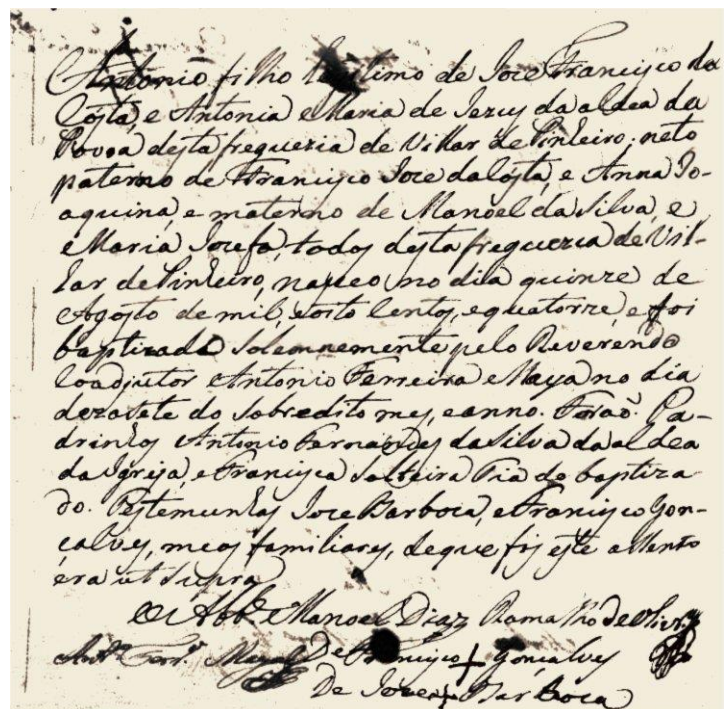 Antonio filho legitimo de Joze Francisco da
Costa, e Antonia Maria de Jezus da aldea da
Povoa desta freguezia de Villar de Pinheiro; neto
paterno de Francisco Joze da Costa, e Anna Jo-
aquina, e materno de Manoel da Silva, e
Maria Josefa, todos desta freguezia de Vil-
lar de Pinheiro, nasceo no dia quinze de
Agosto de mil, e oito centos, e quatorze, e foi
baptizado solemnemente pelo Reverendo
Coadjutor Antonio Ferreira Maya no dia
dezasete do sobredito mes, e anno. Forão Pa-
drinhos Antonio Fernandes da Silva da aldea
da Igreja, e Francisca Solteira Tia do baptiza-
do. Testemunhas Joze Barboca, e Francisco Gon-
calves, meos familiares, de que fis este assento
éra ut supra
O Abb.e Manoel Diaz Ramalho de Olivr.a
Ant.o Ferr.a Maya De Francisco + Gonçalves
De Joze + Barboca